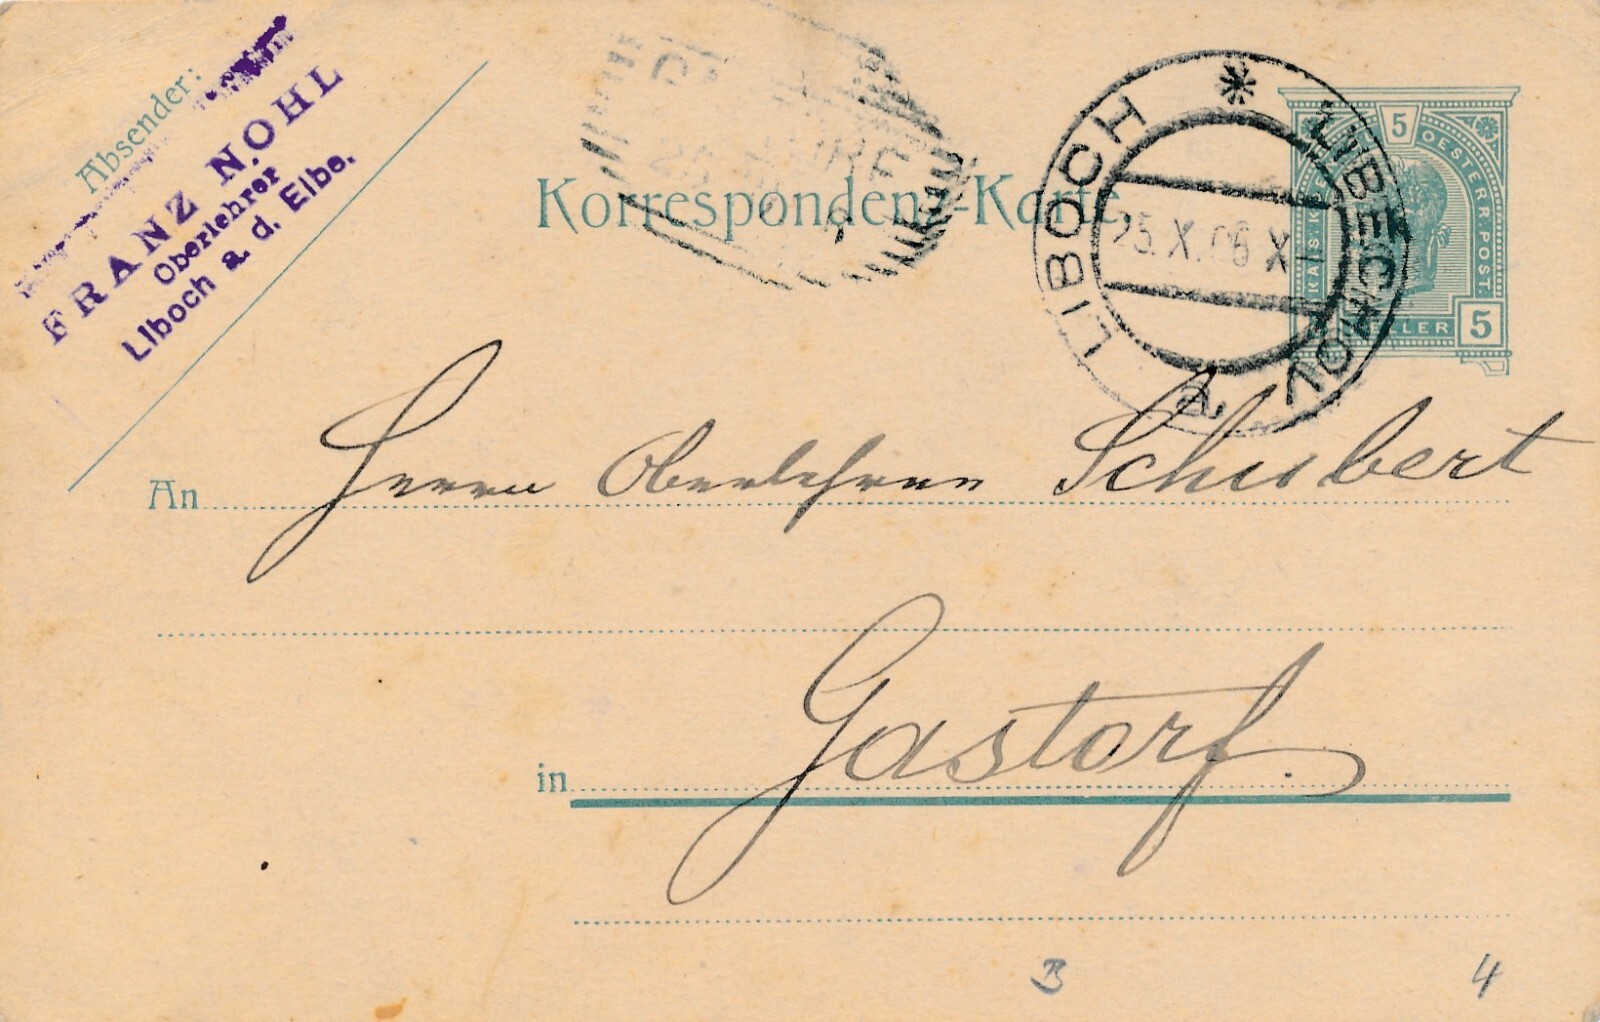 Absender:
FRANZ NOHL
Oberlehrer
Liboch a. d. Elbe.
Korrespondenz-Karte.
LIBOCH * LIBĚCHOV
25.X.06 XI
a
5
OESTERR. POST
KAIS. KÖN.
HELLER 5
An Herrn Oberlehrer Schubert
in Gastorf.
B 4